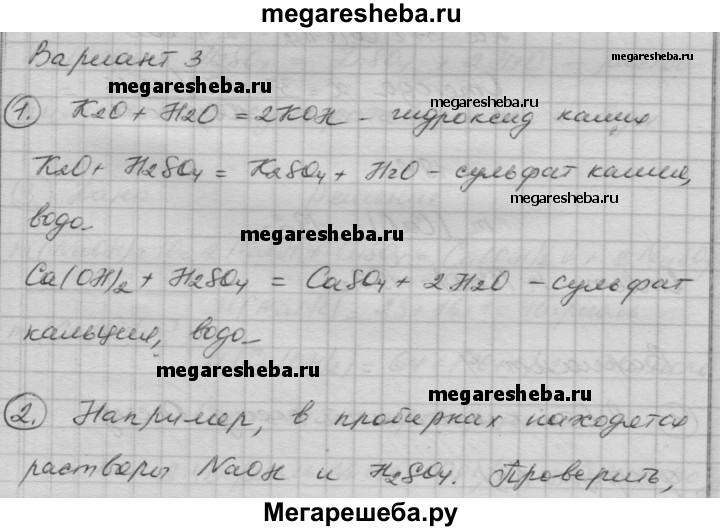 megaresheba.ru
Вариант 3
megaresheba.ru
megaresheba.ru
megaresheba.ru
1. K2O + H2O = 2KOH - гидроксид калия
K2O + H2SO4 = K2SO4 + H2O - сульфат калия,
megaresheba.ru
вода
megaresheba.ru
megaresheba.ru
Ca(OH)2 + H2SO4 = CaSO4 + 2H2O - сульфат
кальция, вода
megaresheba.ru
megaresheba.ru
2. Например, в пробирках находятся
растворы NaOH и H2SO4. Проверить,
Мегарешеба.ру